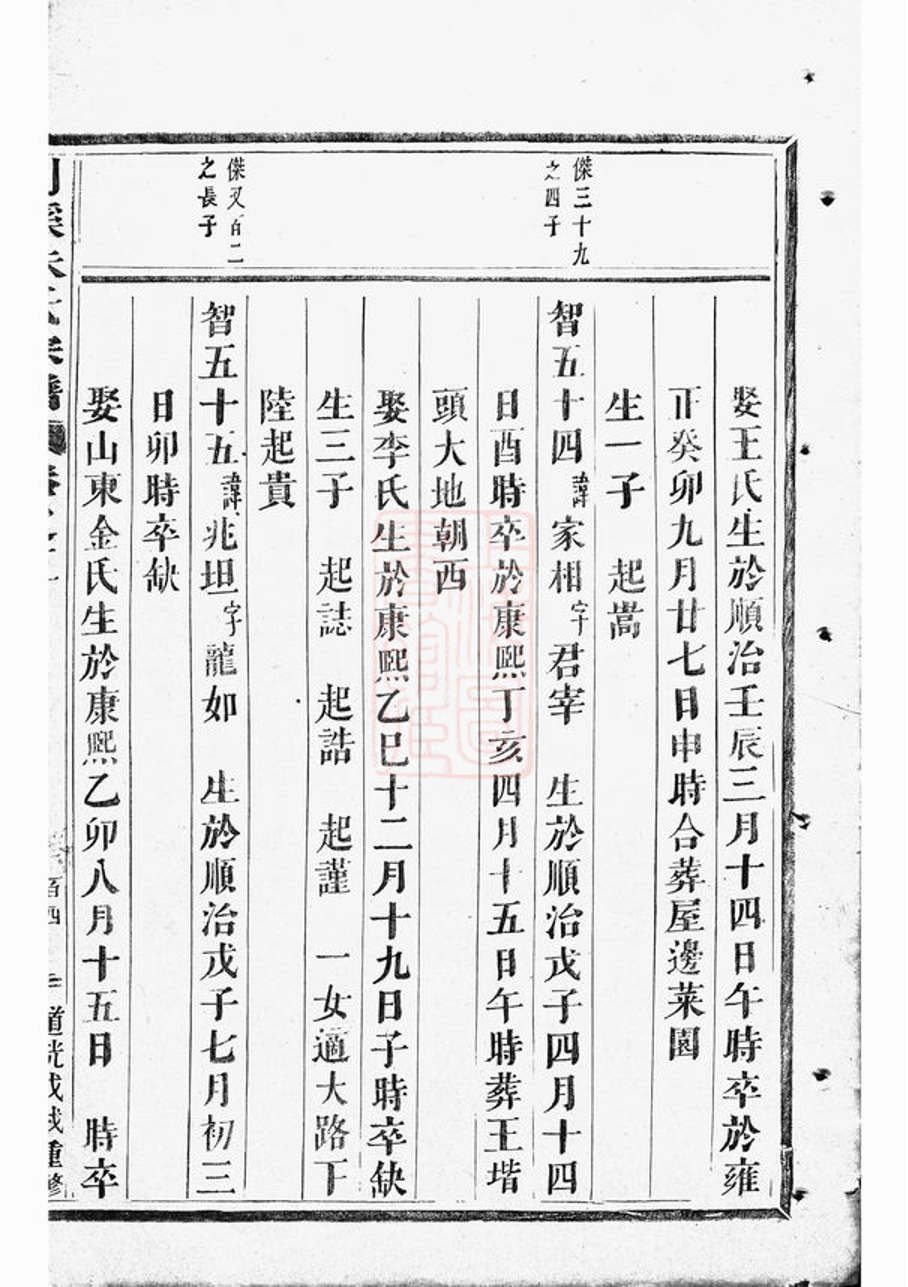 娶王氏生於順治壬辰三月十四日午時卒於雍
正癸卯九月廿七日申時合葬屋邊菜園
生一子 起嵩
傑三十九
之四子
智五十四諱家相字君宰 生於順治戊子四月十四
日酉時卒於康熙丁亥四月十五日午時葬王堦
頭大地朝西
娶李氏生於康熙乙巳十二月十九日子時卒缺
生三子 起誌 起誥 起謹 一女適大路下
陸起貴
傑又百二
之長子
智五十五諱兆坦字龍如 生於順治戊子七月初三
日卯時卒缺
娶山東金氏生於康熙乙卯八月十五日 時卒
道光戊戌重修